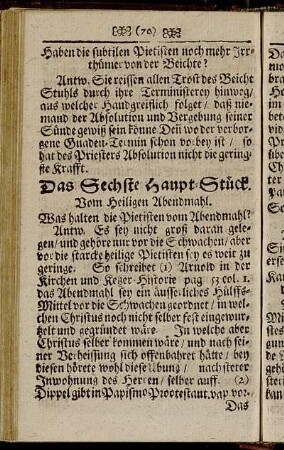 (70)
Haben die subtilen Pietisten noch mehr Irr-
thümer von der Beichte?
Antw. Sie reissen allen Trost des Beicht
Stuhls durch ihre Terministerey hinweg/
aus welcher Handgreiflich folget/ daß nie-
mand der Absolution und Vergebung seiner
Sünde gewiß sein könne Deñ wo der verbor-
gene Gnaden-Termin schon vorbey ist/ so
hat des Priesters Absolution nicht die gering-
ste Krafft.
Das Sechste Haupt-Stück.
Vom Heiligen Abendmahl.
Was halten die Pietisten vom Abendmahl?
Antw. Es sey nicht groß daran gele-
gen/ und gehöre nur vor die Schwachen/ aber
vor die starcke heilige Pietisten sey es weit zu
geringe. So schreibet (1) Arnold in der
Kirchen und Ketzer-Historie pag 53 col. 1.
das Abendmahl sey ein äusserliches Hülffs-
Mittel vor die Schwachen geordnet/ in wel-
chen Christus noch nicht selber fest eingewur-
tzelt und gegründet wäre. In welche aber
Christus selber kommen wäre/ und nach sei-
ner Verheissung sich offenbahret hätte/ bey
diesen hörete wohl dieselbung/ nach
Inwohnung des Herren/ selber auff. (2)
Dippel gibt in Papismo Protestant. vap. vor-
Das